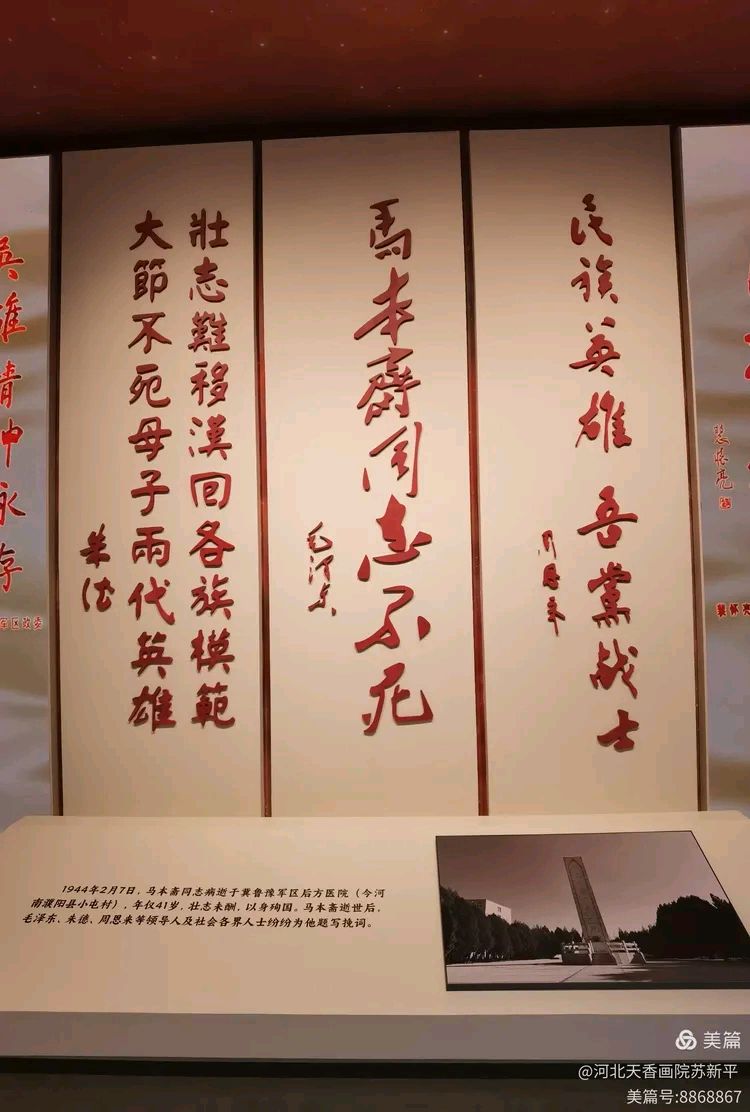 裴怀亮
民族英雄 吾黨战士
周恩来
馬本齋同志不死
毛泽东
壯志難移漢回各族模範
大節不死母子兩代英雄
朱德
英雄精神永存
军区政委
1944年2月7日，马本斋同志病逝于冀鲁豫军区后方医院（今河
南濮阳县小屯村），年仅41岁，壮志未酬，以身殉国。马本斋逝世后，
毛泽东、朱德、周恩来等领导人及社会各界人士纷纷为他题写挽词。
美篇
@河北天香画院苏新平
美篇号:8868867